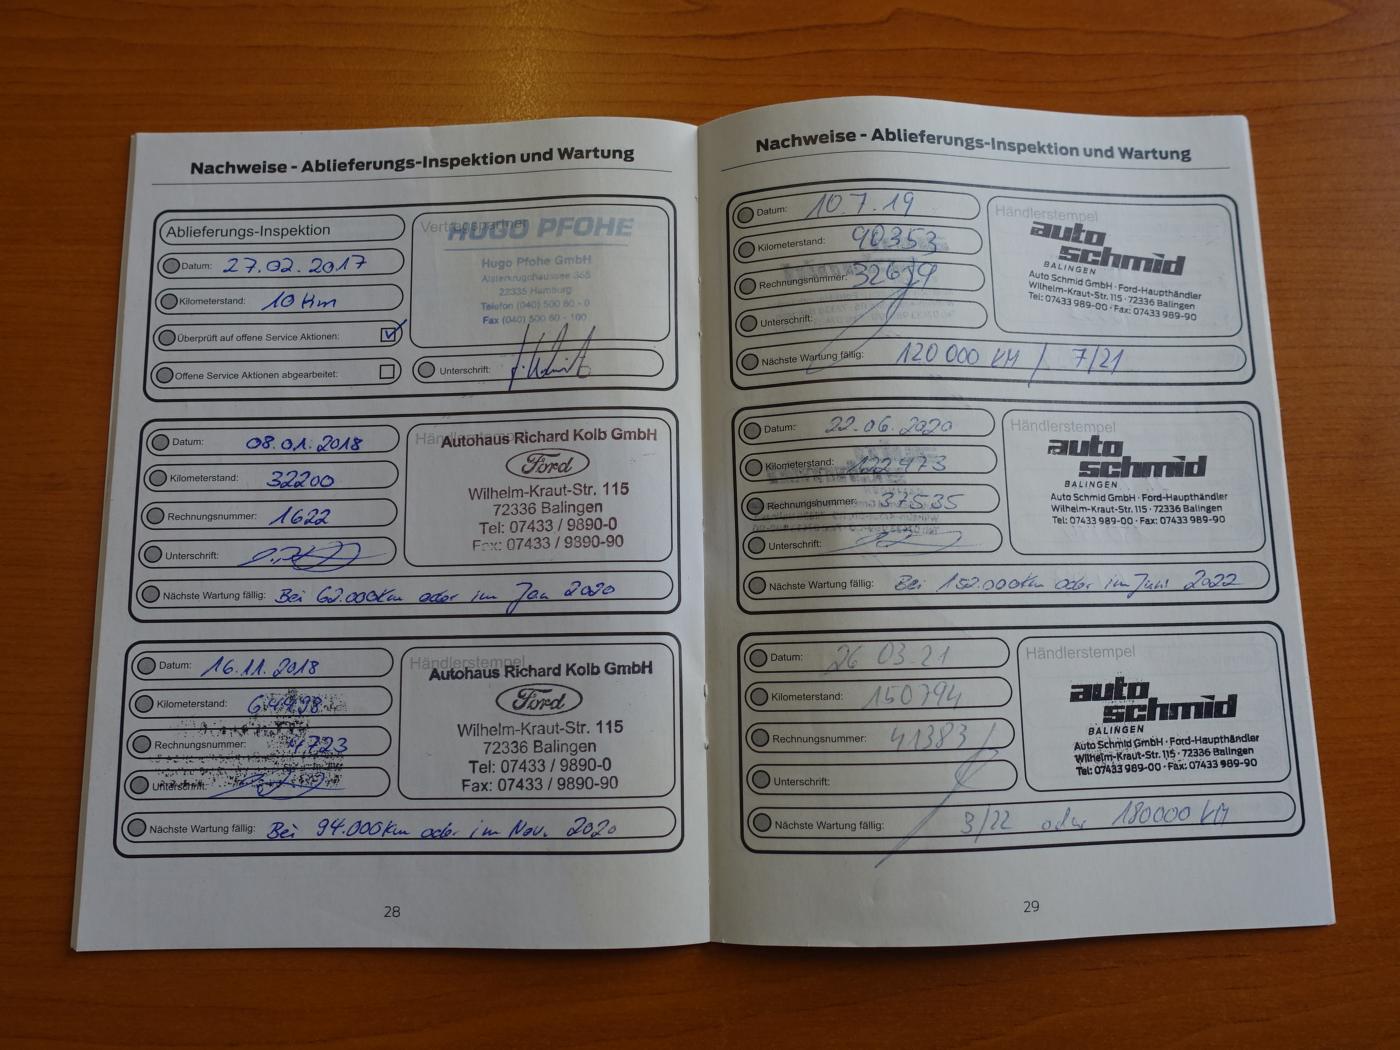 Nachweise - Ablieferungs-Inspektion und Wartung
Ablieferungs-Inspektion
Datum: 27.02.2017
Kilometerstand: 10 Km
Überprüft auf offene Service Aktionen:
Offene Service Aktionen abgearbeitet:
Vertragspartner
HUGO PFOHE
Hugo Pfohe GmbH
Alsterkrugchaussee 355
22335 Hamburg
Telefon (040) 500 60 - 0
Fax (040) 500 60 - 100
Unterschrift:
Datum: 08.01.2018
Kilometerstand: 32200
Rechnungsnummer: 1622
Unterschrift:
Händlerstempel
Autohaus Richard Kolb GmbH
Ford
Wilhelm-Kraut-Str. 115
72336 Balingen
Tel: 07433 / 9890-0
Fax: 07433 / 9890-90
Nächste Wartung fällig: Bei 62.000Km oder im Jan 2020
Datum: 16.11.2018
Kilometerstand: 64498
Rechnungsnummer: 4723
Unterschrift:
Händlerstempel
Autohaus Richard Kolb GmbH
Ford
Wilhelm-Kraut-Str. 115
72336 Balingen
Tel: 07433 / 9890-0
Fax: 07433 / 9890-90
Nächste Wartung fällig: Bei 94.000Km oder im Nov. 2020
28
Nachweise - Ablieferungs-Inspektion und Wartung
Datum: 10.7.19
Kilometerstand: 90353
Rechnungsnummer:
Unterschrift:
Händlerstempel
auto
schmid
BALINGEN
Auto Schmid GmbH · Ford-Haupthändler
Wilhelm-Kraut-Str. 115 · 72336 Balingen
Tel: 07433 989-00 · Fax: 07433 989-90
Nächste Wartung fällig: 120 000 KM / 7/21
Datum: 22.06.2020
Kilometerstand: 122473
Rechnungsnummer: 37535
Unterschrift:
Händlerstempel
auto
schmid
BALINGEN
Auto Schmid GmbH · Ford-Haupthändler
Wilhelm-Kraut-Str. 115 · 72336 Balingen
Tel: 07433 989-00 · Fax: 07433 989-90
Nächste Wartung fällig: Bei 152.000Km oder im Juni 2022
Datum: 26 03.21
Kilometerstand: 150794
Rechnungsnummer: 41383
Unterschrift:
Händlerstempel
auto
schmid
BALINGEN
Auto Schmid GmbH · Ford-Haupthändler
Wilhelm-Kraut-Str. 115 · 72336 Balingen
Tel: 07433 989-00 · Fax: 07433 989-90
Nächste Wartung fällig: 3/22 oder 180000 KM
29